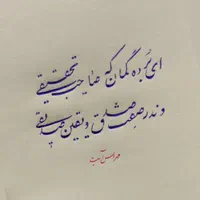 ای برده گمان که صاحب تحقیقی
وندر صفت صدق و یقین صدیقی